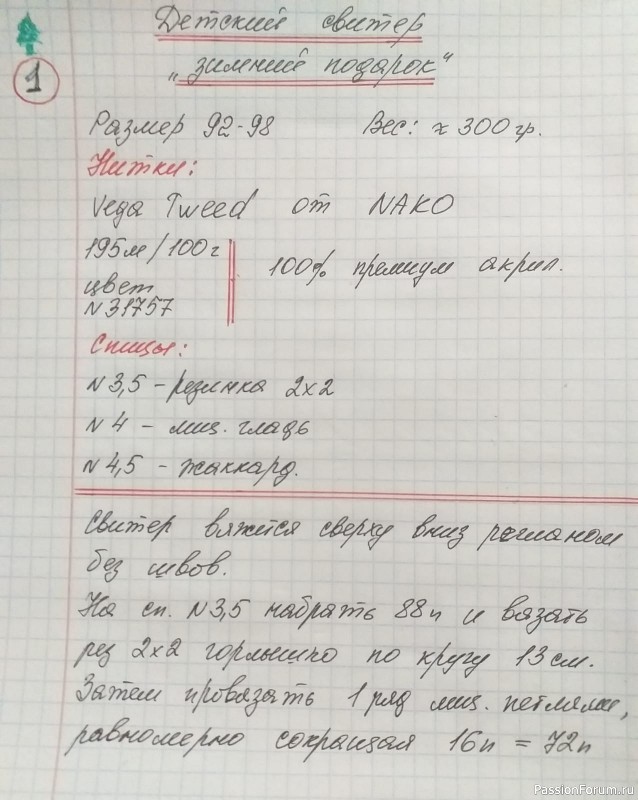 Детский свитер
"зимний подарок"
1
Размер 92-98 Вес: ≈ 300 гр.
Нитки:
Vega Tweed от NAKO
195м/100г
100% премиум акрил.
цвет
N31757
Спицы:
N3,5 - резинка 2х2
N4 - лиц. гладь
N4,5 - жаккард.
Свитер вяжется сверху вниз регланом
без швов.
На сп. N3,5 набрать 88п и вязать
рез 2х2 горлышко по кругу 13 см.
Затем провязать 1 ряд лиц. петлями,
равномерно сокращая 16п = 72п
PassionForum.ru